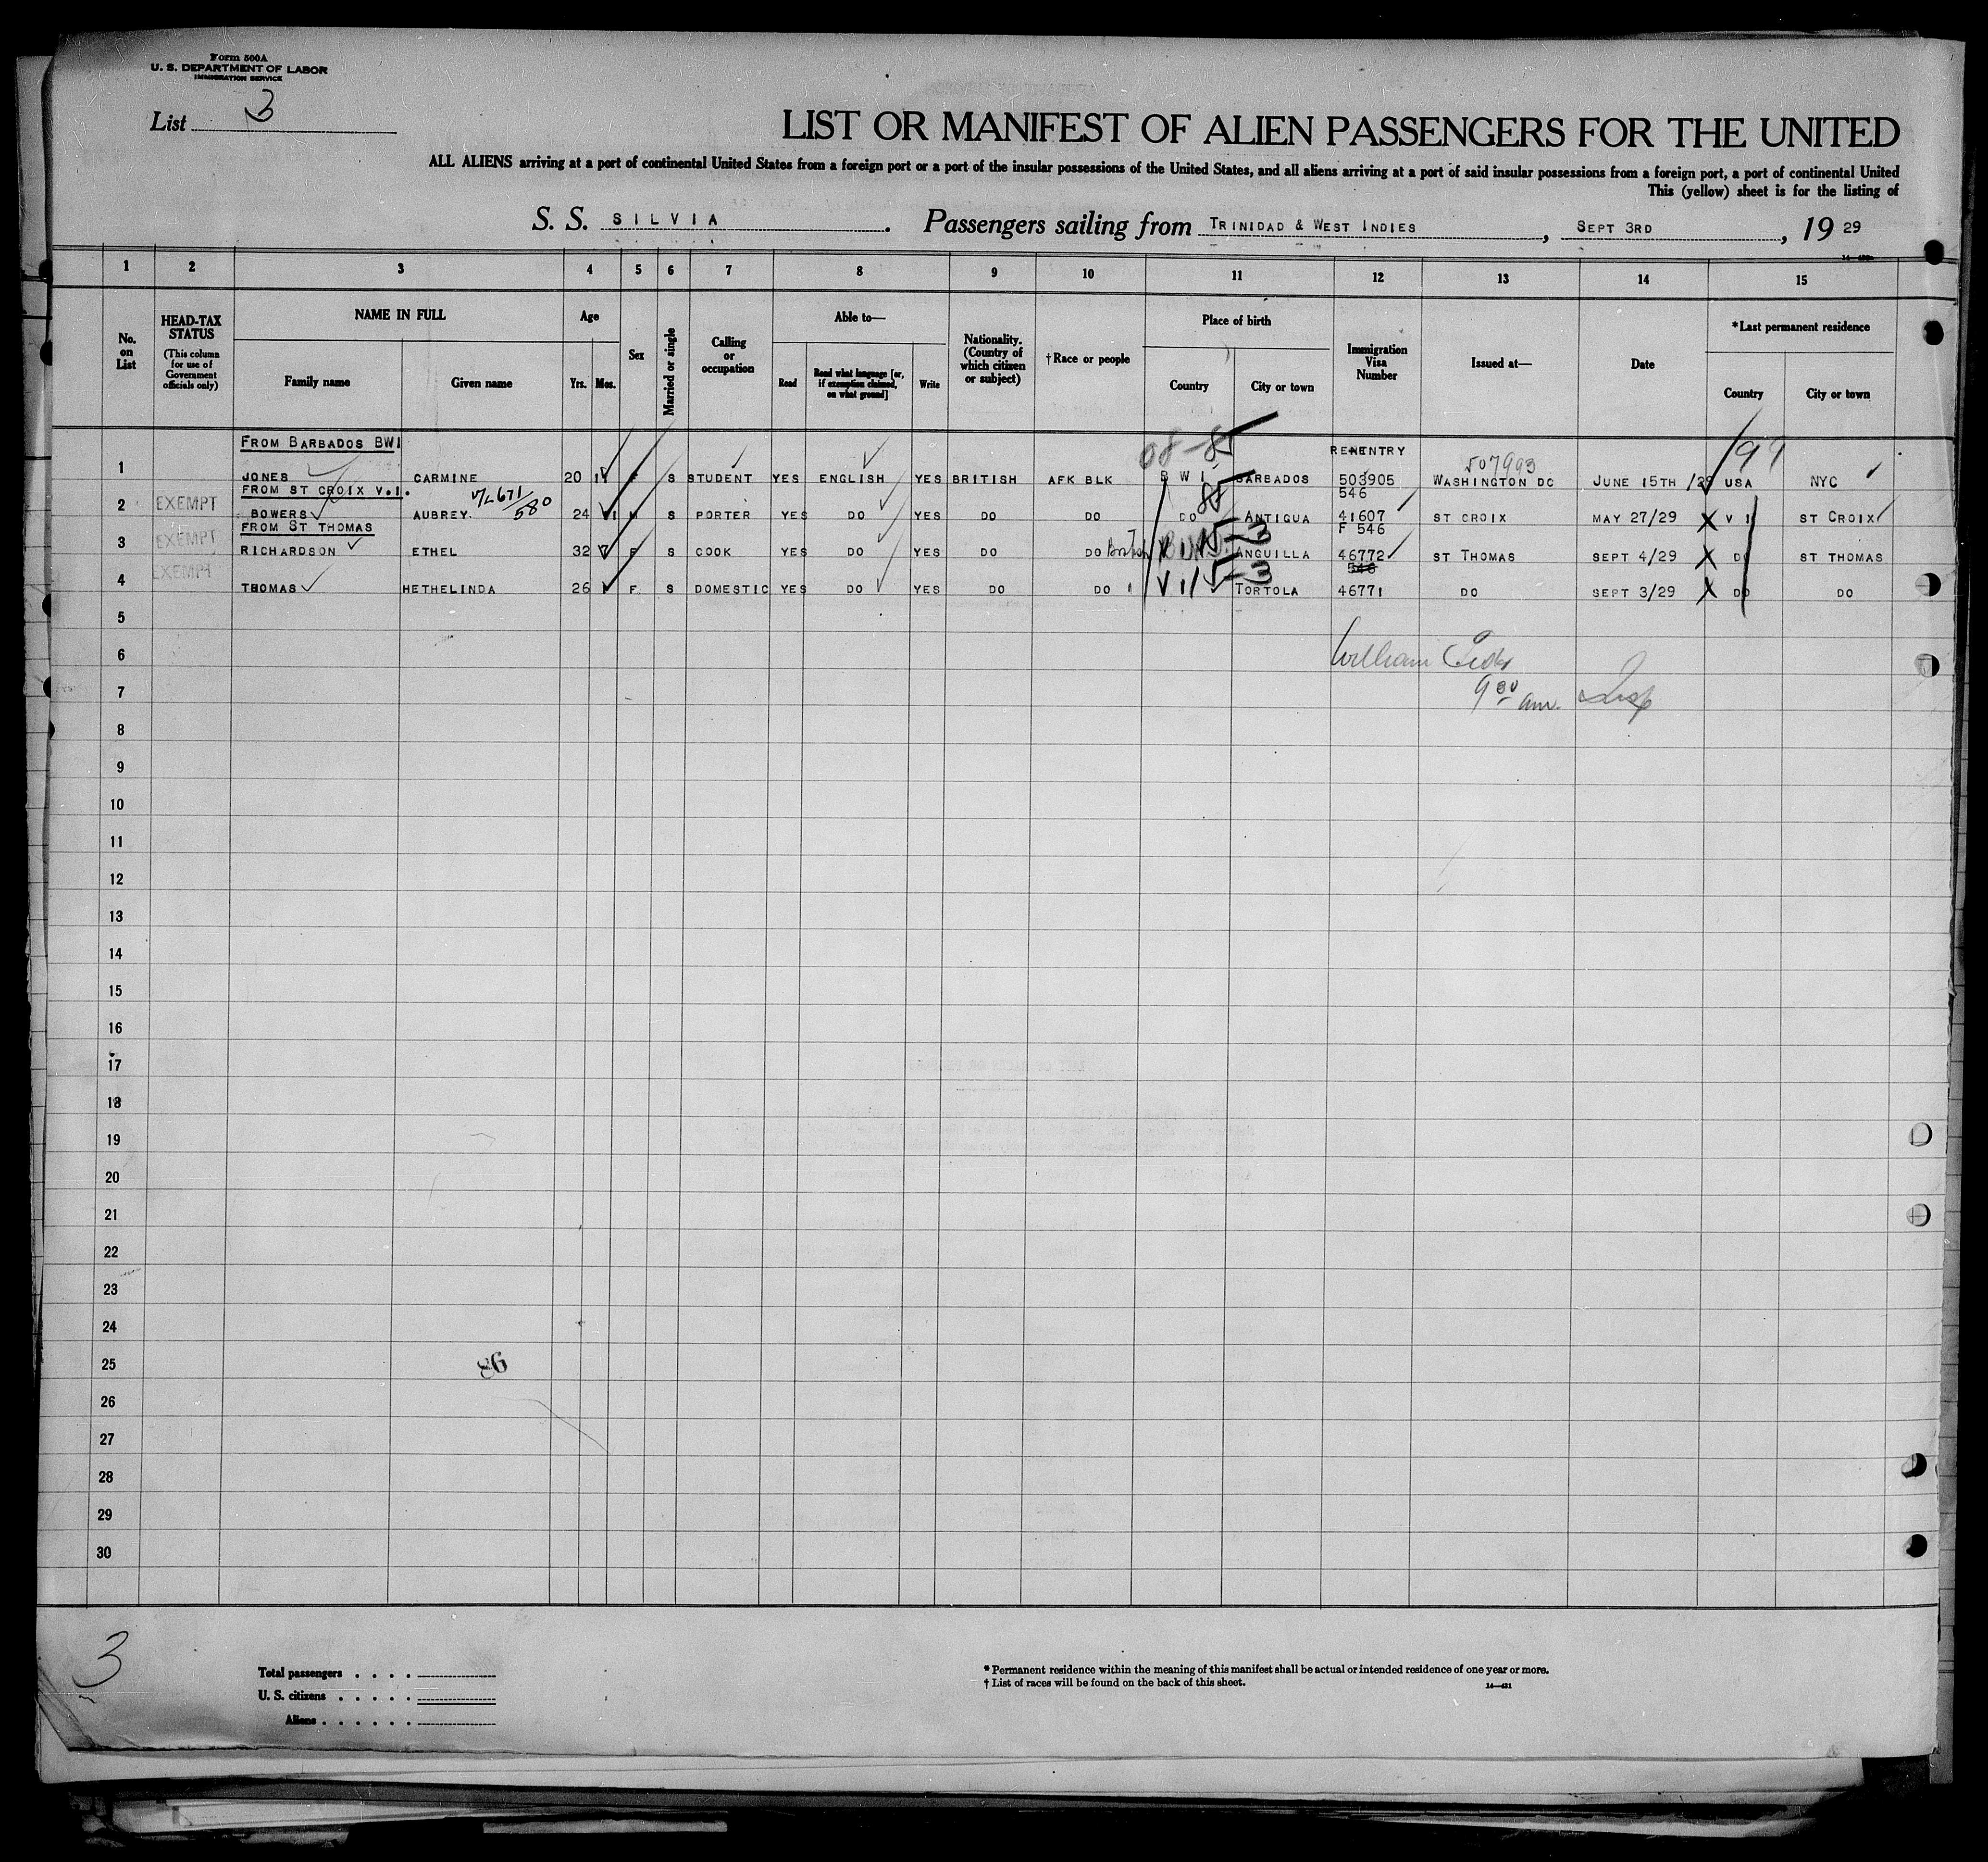 Form 500A
U. S. DEPARTMENT OF LABOR
IMMIGRATION SERVICE
List 3
LIST OR MANIFEST OF ALIEN PASSENGERS FOR THE UNITED
ALL ALIENS arriving at a port of continental United States from a foreign port or a port of the insular possessions of the United States, and all aliens arriving at a port of said insular possessions from a foreign port, a port of continental United
This (yellow) sheet is for the listing of
S. S. SILVIA. Passengers sailing from TRINIDAD & WEST INDIES, SEPT 3RD, 19 29
1 2 3 4 5 6 7 8 9 10 11 12 13 14 15
No. on List
HEAD-TAX STATUS
(This column for use of Government officials only)
NAME IN FULL
Family name
Given name
Age
Yrs. Mos.
Sex
Married or single
Calling or occupation
Able to—
Read
Read what language [or, if exemption claimed, on what ground]
Write
Nationality. (Country of which citizen or subject)
† Race or people
Place of birth
Country
City or town
Immigration Visa Number
Issued at—
Date
*Last permanent residence
Country
City or town
FROM BARBADOS BWI
08-8 REENTRY 507993
1 JONES CARMINE 20 F S STUDENT YES ENGLISH YES BRITISH AFK BLK B W I BARBADOS 503905 WASHINGTON DC JUNE 15TH /29 USA NYC
FROM ST CROIX V.I. 546
2 EXEMPT BOWERS AUBREY 24 M S PORTER YES DO YES DO DO DO ANTIGUA 41607 ST CROIX MAY 27/29 V I ST CROIX
FROM ST THOMAS F 546
3 EXEMPT RICHARDSON ETHEL 32 F S COOK YES DO YES DO DO ANGUILLA 46772 ST THOMAS SEPT 4/29 DO ST THOMAS
546
4 EXEMPT THOMAS HETHELINDA 26 F S DOMESTIC YES DO YES DO DO V I TORTOLA 46771 DO SEPT 3/29 DO DO
5
6 William
7 9 30 am. Insp
8
9
10
11
12
13
14
15
16
17
18
19
20
21
22
23
24
25
26
27
28
29
30
3
Total passengers . . . .
U. S. citizens . . . . .
Aliens . . . . . .
* Permanent residence within the meaning of this manifest shall be actual or intended residence of one year or more.
† List of races will be found on the back of this sheet.